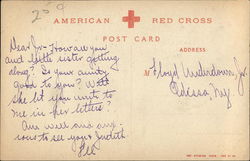 259
AMERICAN RED CROSS
POST CARD
ADDRESS
Dear Jr - How are you
and little sister getting
along? Is your aunty
good to you? Will
she let you write to
me in her letters?
Am well and anx-
ious to see you & Judith.
M Floyd Underdown, Jr.
Odessa, N.Y.